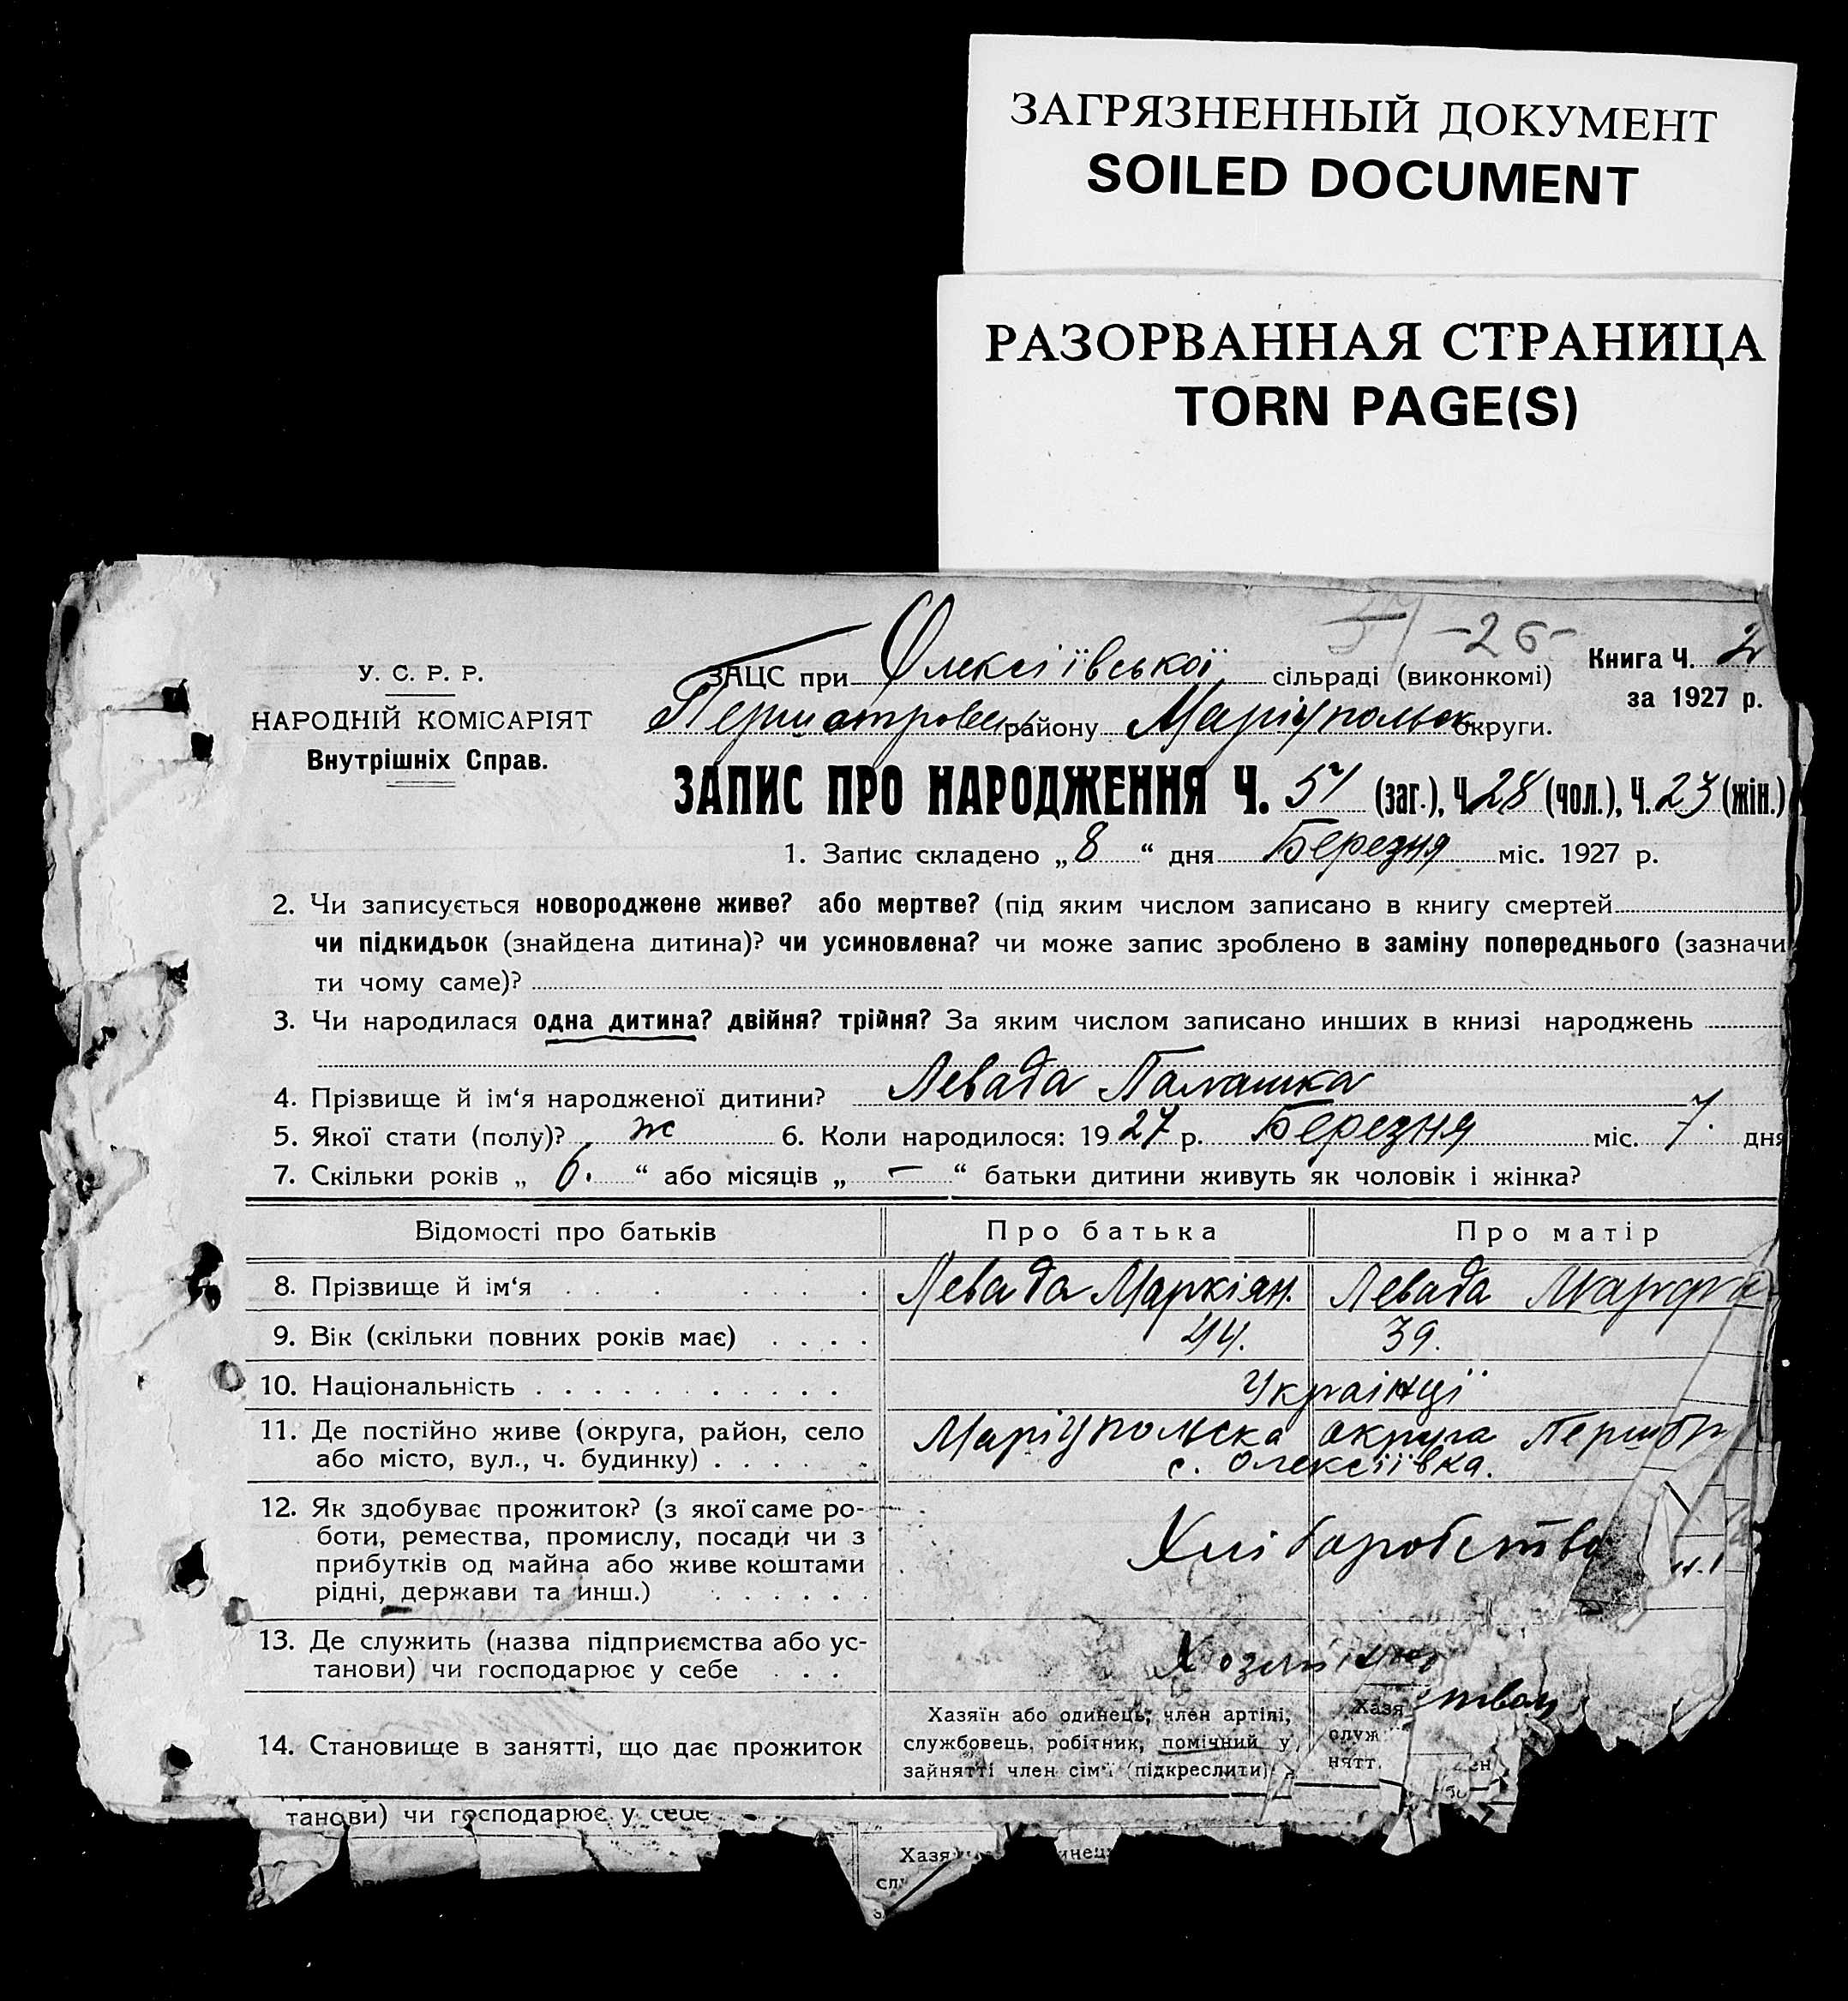 ЗАГРЯЗНЕННЫЙ ДОКУМЕНТ
SOILED DOCUMENT
РАЗОРВАННАЯ СТРАНИЦА
TORN PAGE(S)
-26-
У. С. Р. Р.
НАРОДНІЙ КОМІСАРІЯТ
Внутрішніх Справ.
ЗАЦС при Олексіївської сільраді (виконкомі)
Книга Ч. 2
за 1927 р.
району Маріупольск округи.
ЗАПИС ПРО НАРОДЖЕННЯ Ч. 51 (заг.), Ч. 28 (чол.), Ч. 23 (жін.)
1. Запис складено „ 8 “ дня Березня міс. 1927 р.
2. Чи записується новороджене живе? або мертве? (під яким числом записано в книгу смертей
чи підкидьок (знайдена дитина)? чи усиновлена? чи може запис зроблено в заміну попереднього (зазначи
ти чому саме)?
3. Чи народилася одна дитина? двійня? трійня? За яким числом записано инших в книзі народжень
4. Прізвище й ім‘я народженої дитини? Левада Палашка
5. Якої стати (полу)? ж 6. Коли народилося: 1927 р. Березня міс. 7. дня
7. Скільки років „ 6. “ або місяців „ — “ батьки дитини живуть як чоловік і жінка?
Відомості про батьків Про батька Про матір
8. Прізвище й ім‘я Левада Маркіян. Левада Марфа
9. Вік (скільки повних років має) 44. 39.
10. Національність Українці
11. Де постійно живе (округа, район, село Маріупольска округа
або місто, вул., ч. будинку) с. Олексіївка.
12. Як здобуває прожиток? (з якої саме ро-
боти, ремества, промислу, посади чи з Хліборобство
прибутків од майна або живе коштами
рідні, держави та инш.)
13. Де служить (назва підприємства або ус-
танови) чи господарює у себе
14. Становище в занятті, що дає прожиток
Хазяїн або одинець, член артілі,
службовець, робітник, помічний у
зайнятті член сім‘ї (підкреслити)
Хазя
служ
нятт.
танови) чи господарює у себе
Хазя